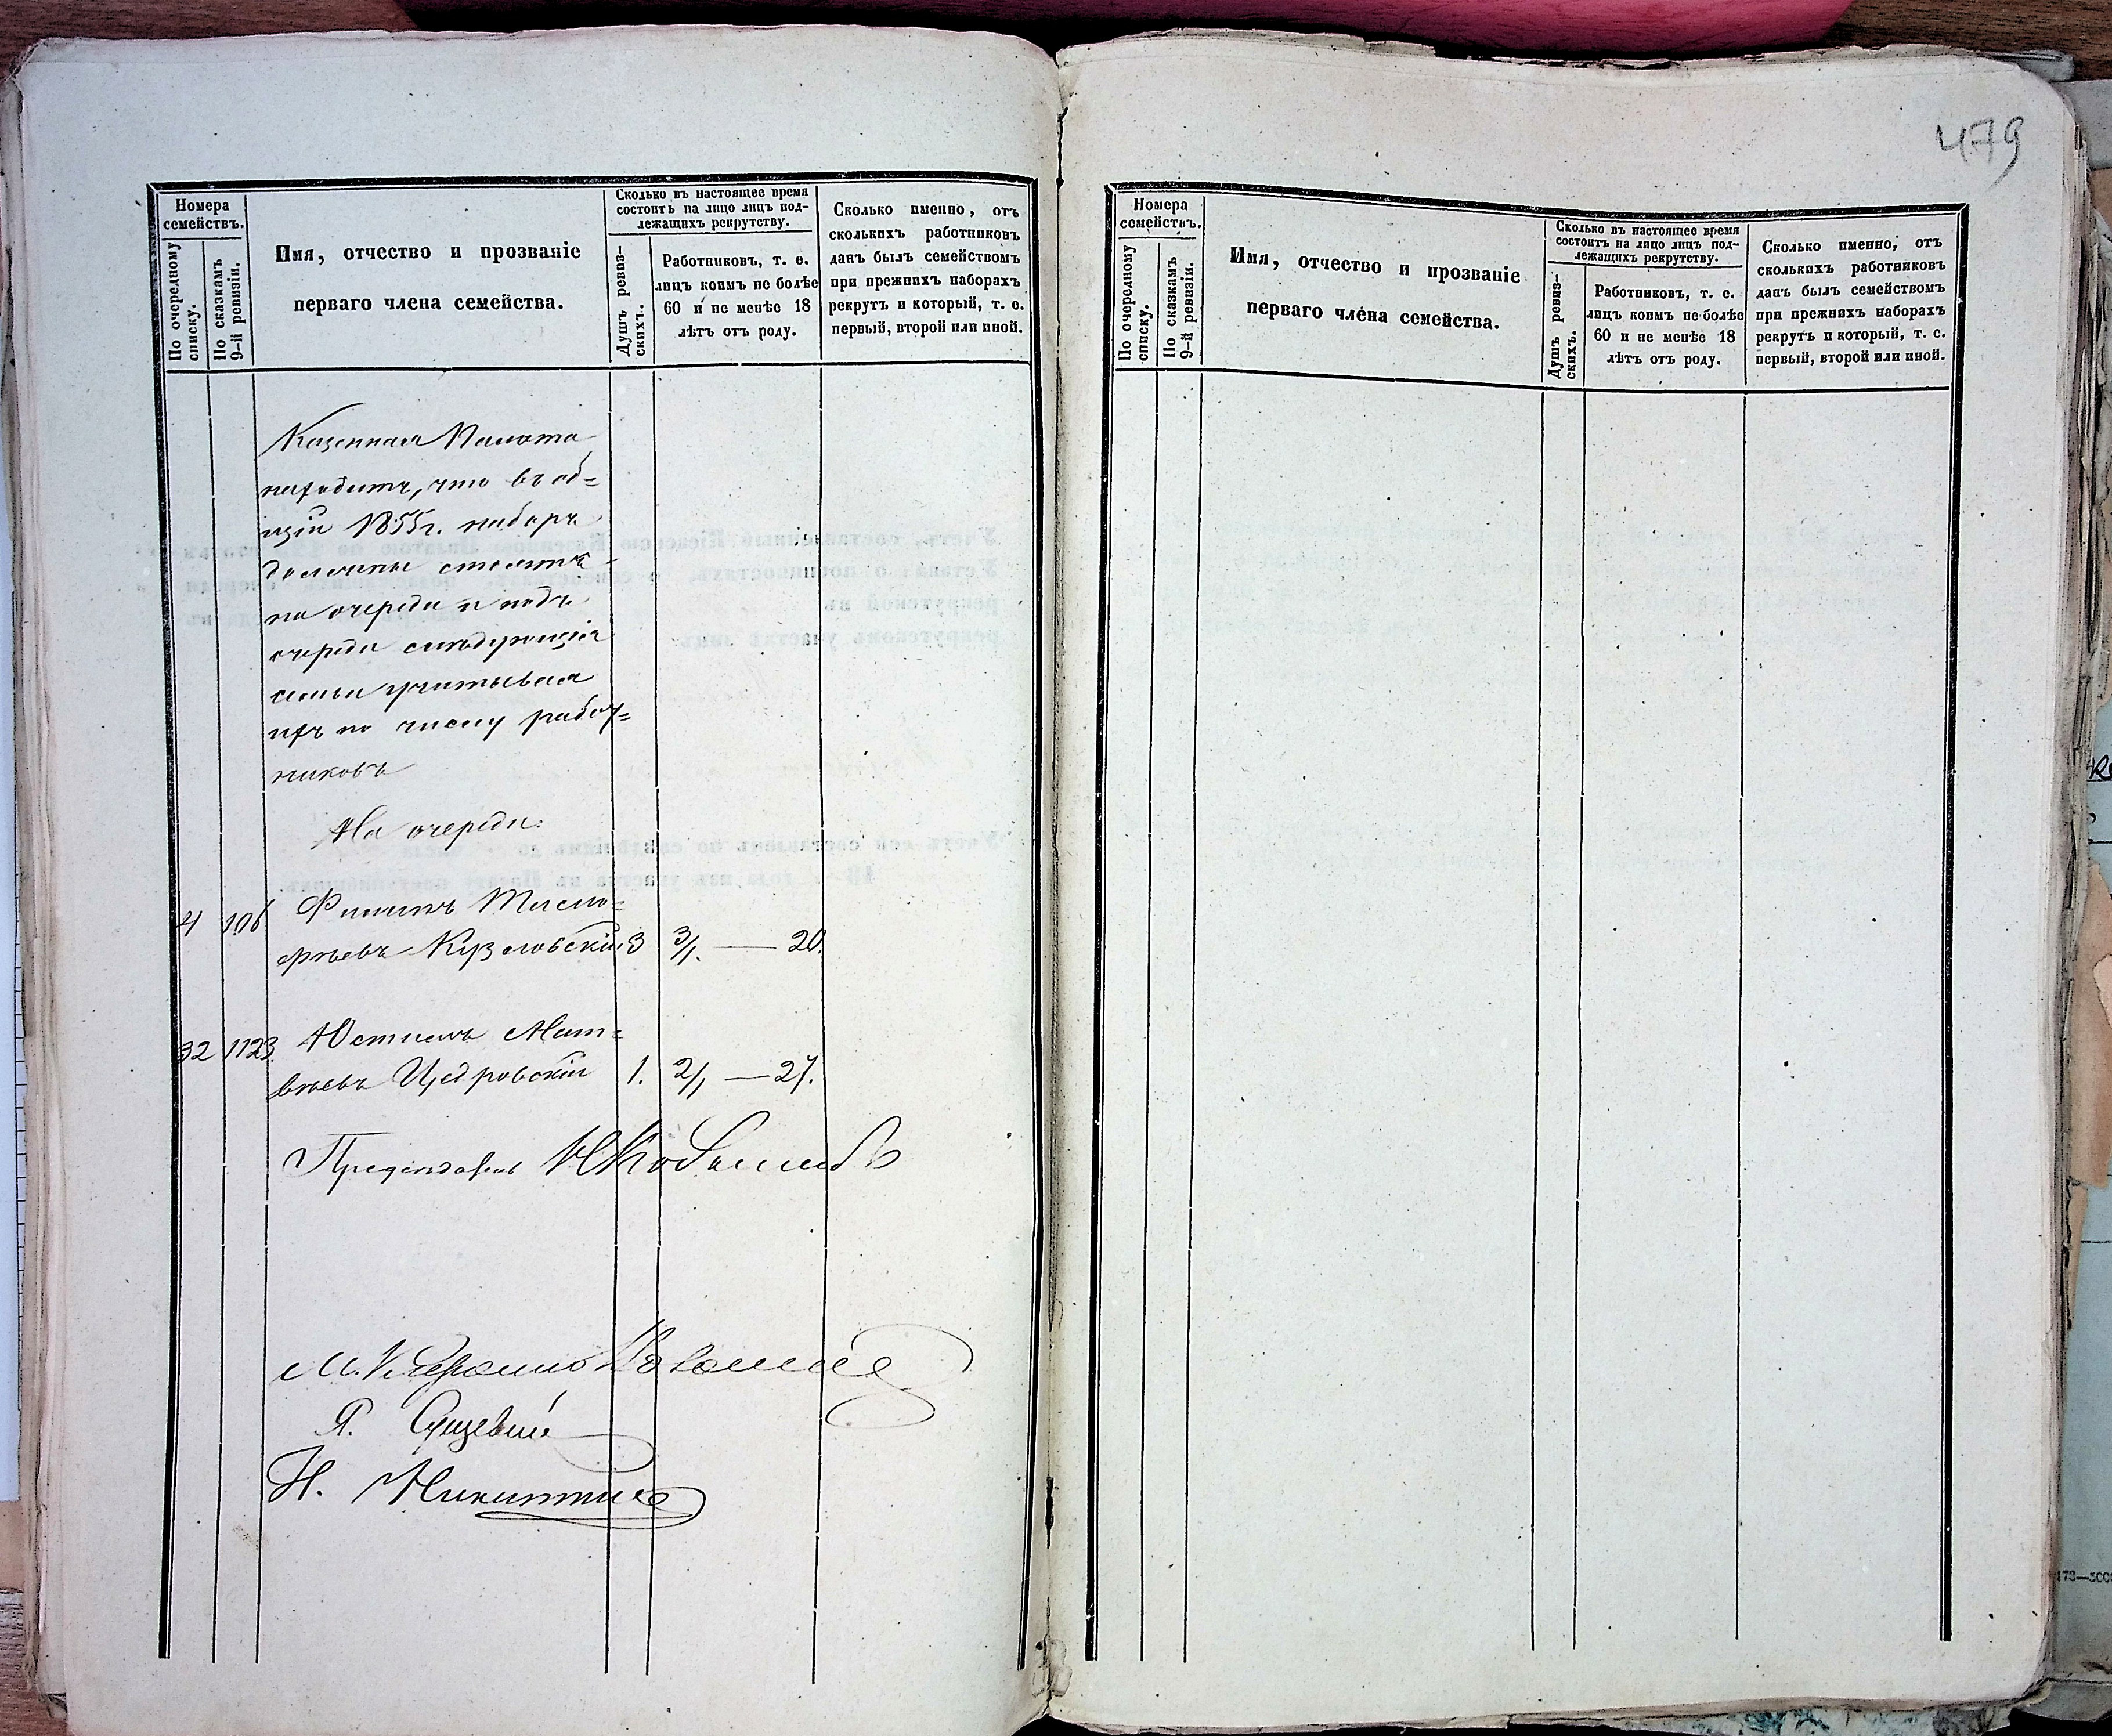 479
Номера
семействъ.
По очередному
списку.
По сказкамъ
9-й ревизіи.
Имя, отчество и прозваніе
перваго члена семейства.
Сколько въ настоящее время
состоитъ на лицо лицъ под-
лежащихъ рекрутству.
Душъ ревиз-
скихъ.
Работниковъ, т. е.
лицъ коимъ не болѣе
60 и не менѣе 18
лѣтъ отъ роду.
Сколько именно, отъ
сколькихъ работниковъ
данъ былъ семействомъ
при прежнихъ наборахъ
рекрутъ и который, т. е.
первый, второй или иной.
Казенная Палата
находитъ, что въ об=
щій 1855 г. наборъ
должны стоять
на очереди и подъ
очереди слѣдующія
семьи учитывая
ихъ по числу работ=
никовъ
На очереди:
4 106 Филипъ Тимо=
фѣевъ Кузловскій 3 3/1. — 20.
32 1123 Юстинъ Мат=
вѣевъ Цедровскій 1. 2/1 — 27.
Предсѣдатель
Я.
Н. Никитинъ
Номера
семействъ.
По очередному
списку.
По сказкамъ
9-й ревизіи.
Имя, отчество и прозваніе
перваго члена семейства.
Сколько въ настоящее время
состоитъ на лицо лицъ под-
лежащихъ рекрутству.
Душъ ревиз-
скихъ.
Работниковъ, т. е.
лицъ коимъ не болѣе
60 и не менѣе 18
лѣтъ отъ роду.
Сколько именно, отъ
сколькихъ работниковъ
данъ былъ семействомъ
при прежнихъ наборахъ
рекрутъ и который, т. е.
первый, второй или иной.